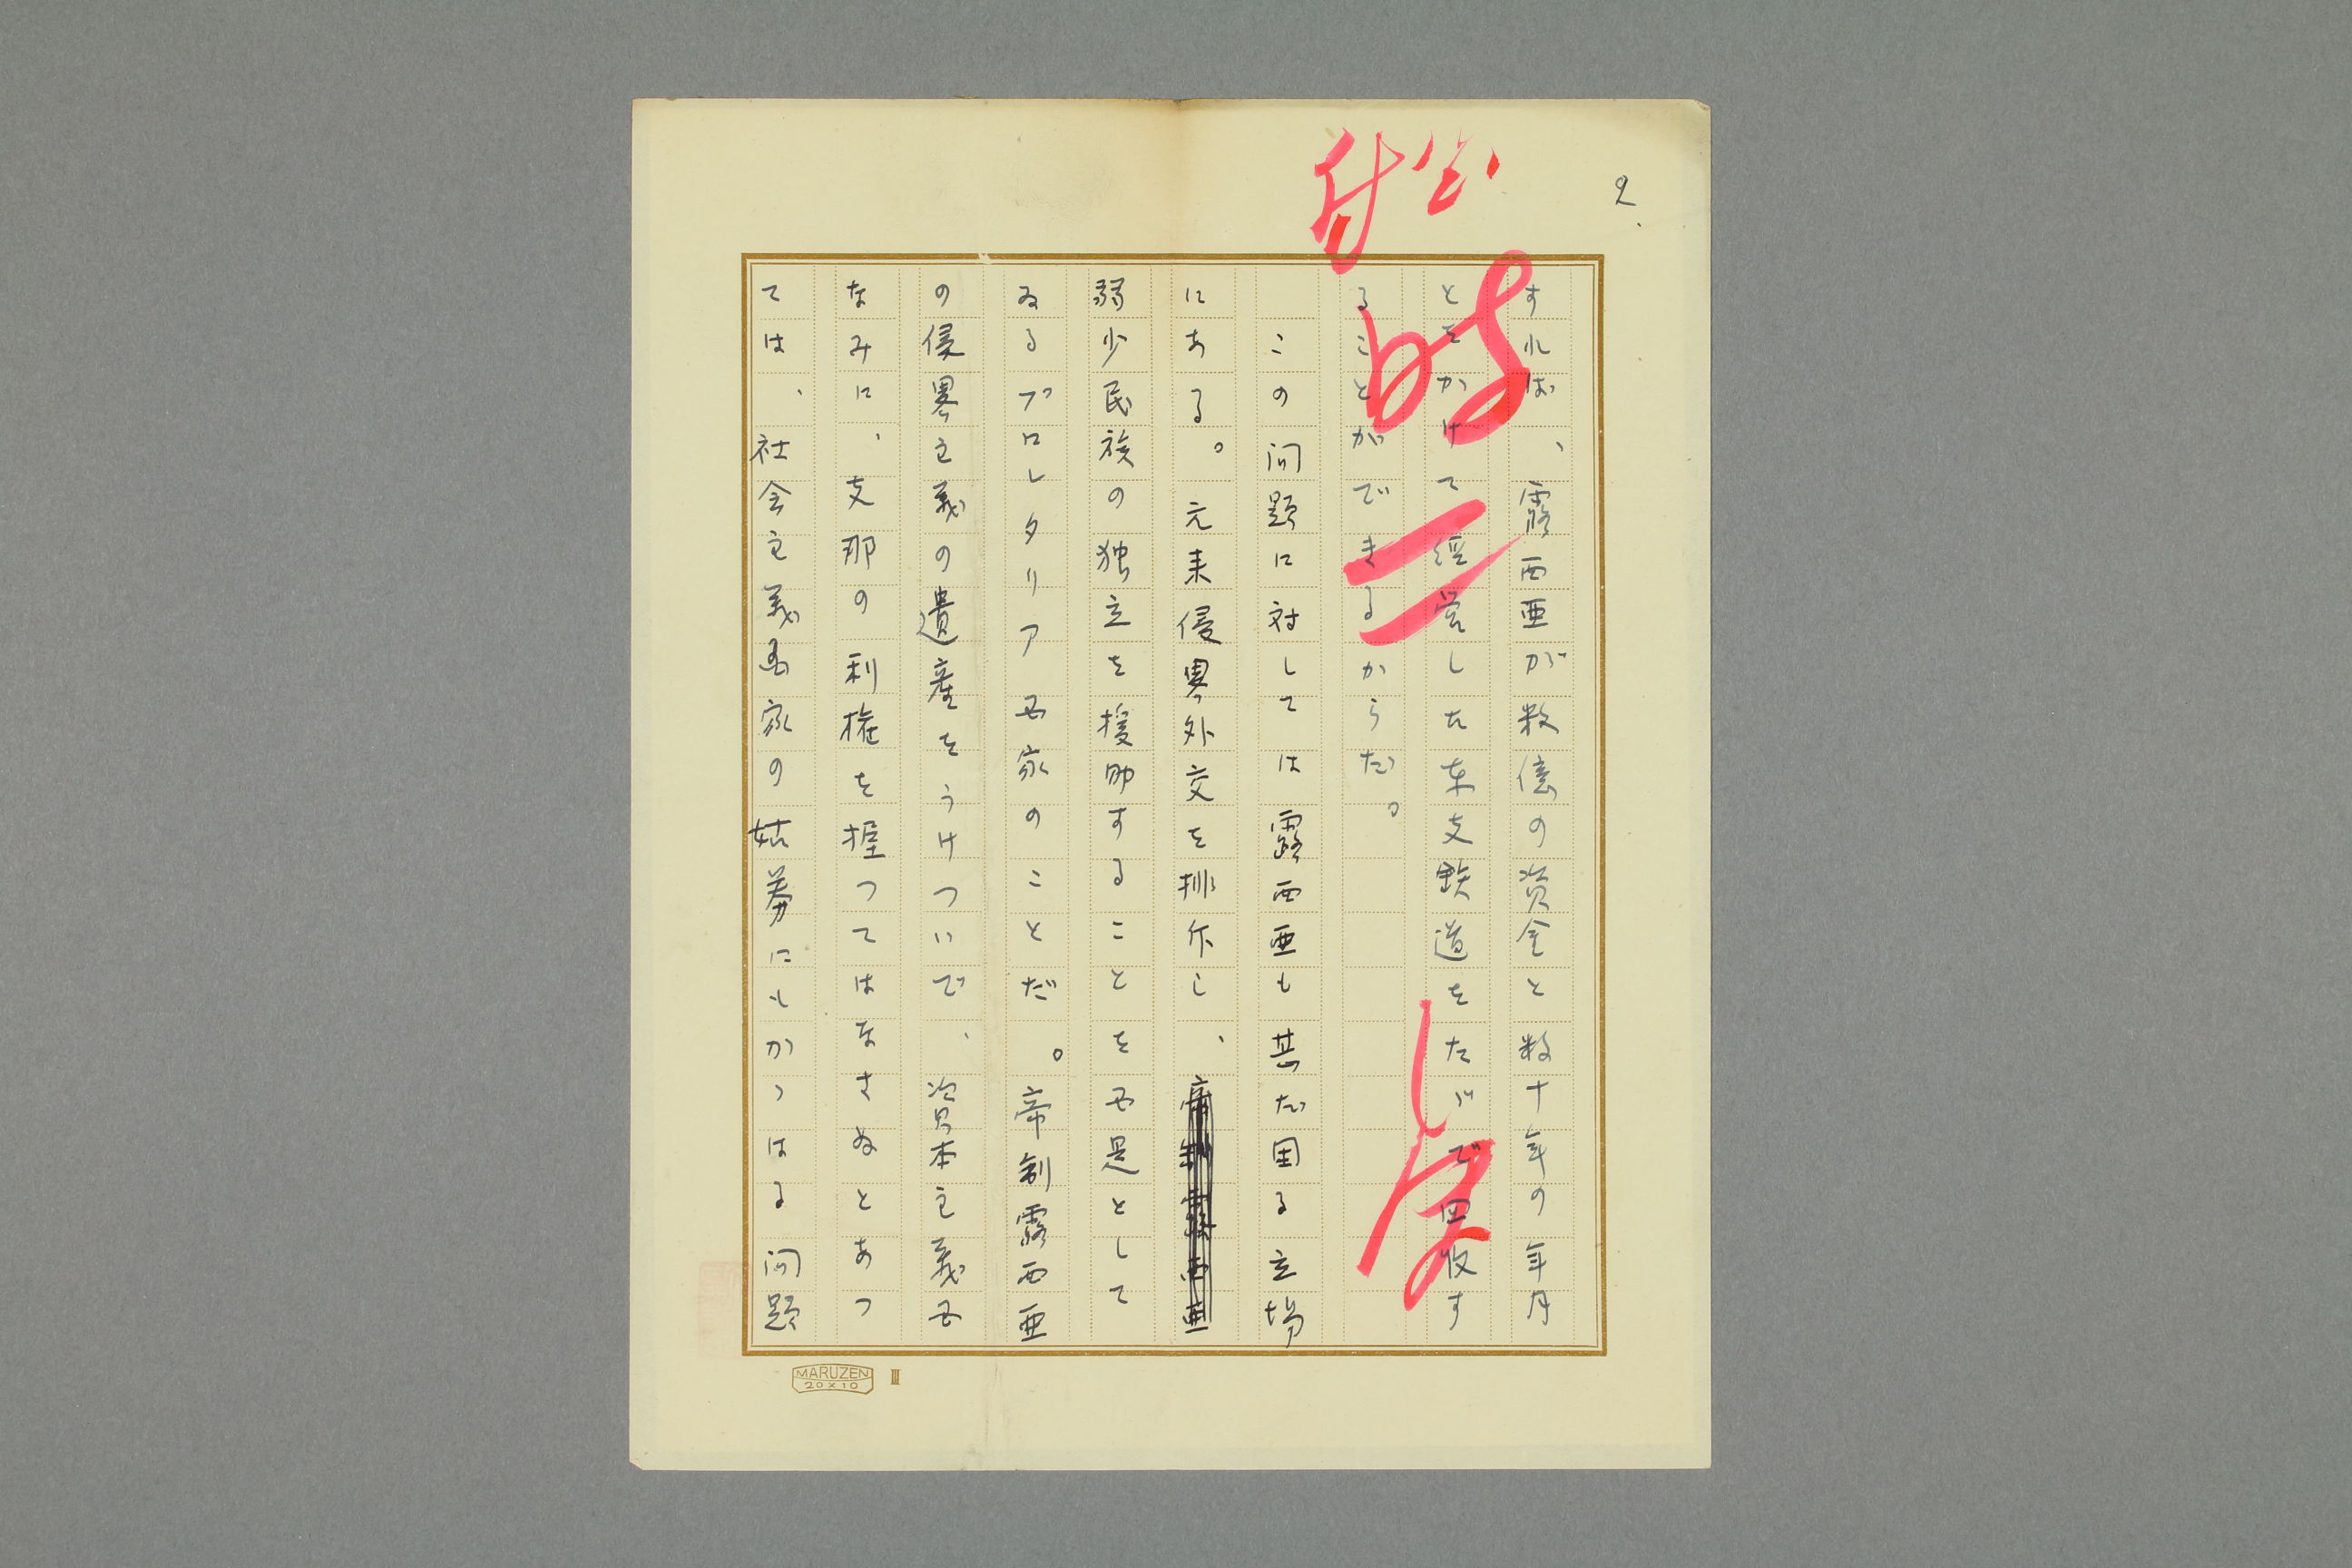 2.
すれば、露西亜が数億の資金と数十年の年月
とをかけて経営した東支鉄道をたゞで回収す
ることができるからだ。
この問題に対しては露西亜も甚だ困る立場
にある。元来侵畧外交を排斥し、帝制露西亜
弱少民族の独立を援助することを国是として
ゐるプロレタリア国家のことだ。帝制露西亜
の侵畧主義の遺産をうけついで、資本主義国
なみに、支那の利権を握つてはなさぬとあつ
ては、社会主義国家の沽券にもかゝはる問題
MARUZEN
20×10
III